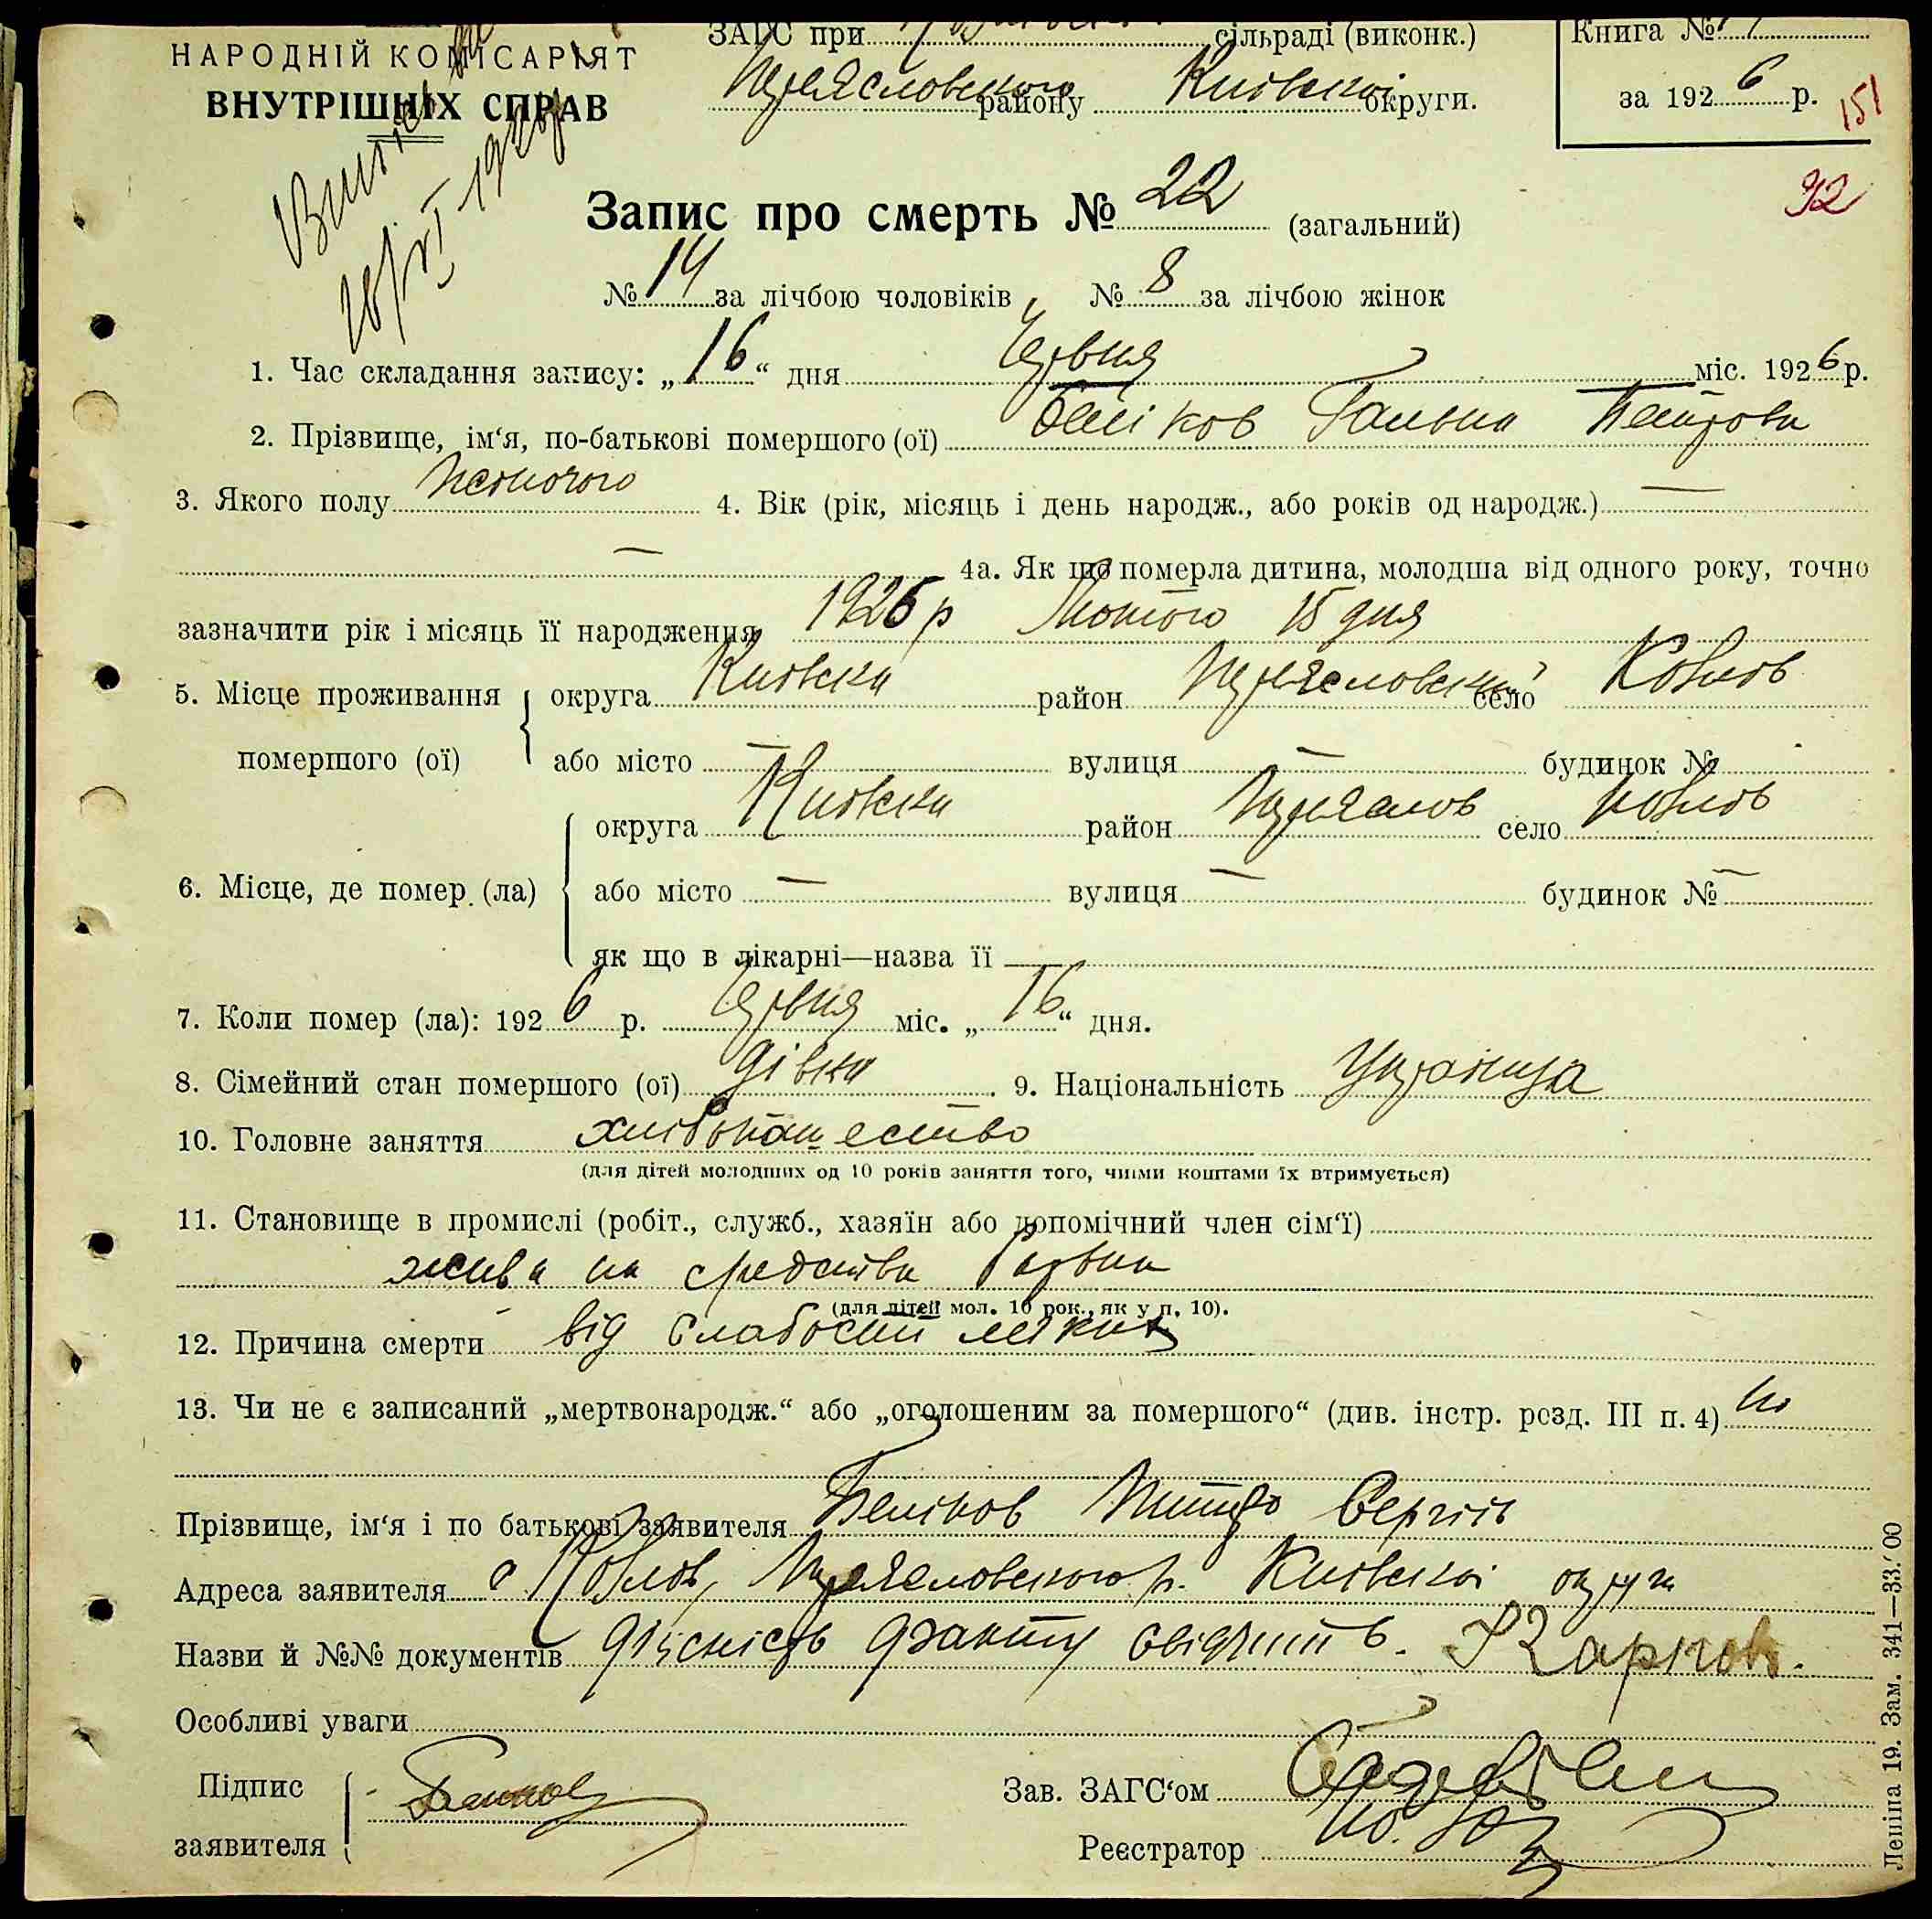 НАРОДНІЙ КОМІСАРІЯТ
ВНУТРІШНІХ СПРАВ
ЗАГС при сільраді (виконк.)
району Київської округи.
Книга №
за 1926 р.
151
92
Запис про смерть № 22 (загальний)
№ 14 за лічбою чоловіків № 8 за лічбою жінок
1. Час складання запису: „16“ дня Червня міс. 1926 р.
2. Прізвище, ім‘я, по-батькові помершого (ої) Беліков Галина Петрова
3. Якого полу жоночого 4. Вік (рік, місяць і день народж., або років од народж.) —
— 4а. Як що померла дитина, молодша від одного року, точно
зазначити рік і місяць її народження 1926 р Лютого 15 дня
5. Місце проживання помершого (ої) округа Київска район село
або місто — вулиця — будинок №
6. Місце, де помер (ла) округа Київска район село
або місто — вулиця — будинок № —
як що в лікарні—назва її —
7. Коли помер (ла): 1926 р. Червня міс. „16“ дня.
8. Сімейний стан помершого (ої) дівка 9. Національність Українца
10. Головне заняття хлібопашество
(для дітей молодших од 10 років заняття того, чиїми коштами їх втримується)
11. Становище в промислі (робіт., служб., хазяїн або допомічний член сім‘ї)
жива на средства
(для дітей мол. 10 рок., як у п. 10).
12. Причина смерти від слабости легких
13. Чи не є записаний „мертвонародж.“ або „оголошеним за помершого“ (див. інстр. розд. III п. 4) ні
Прізвище, ім‘я і по батькові заявителя Беліков Петро Сергіїв
Адреса заявителя с. р. Київскої округи
Назви й №№ документів дійсність факту свідчить.
Особливі уваги
Підпис заявителя
Зав. ЗАГС‘ом
Реєстратор
Леніна 19. Зам. 341—33.000